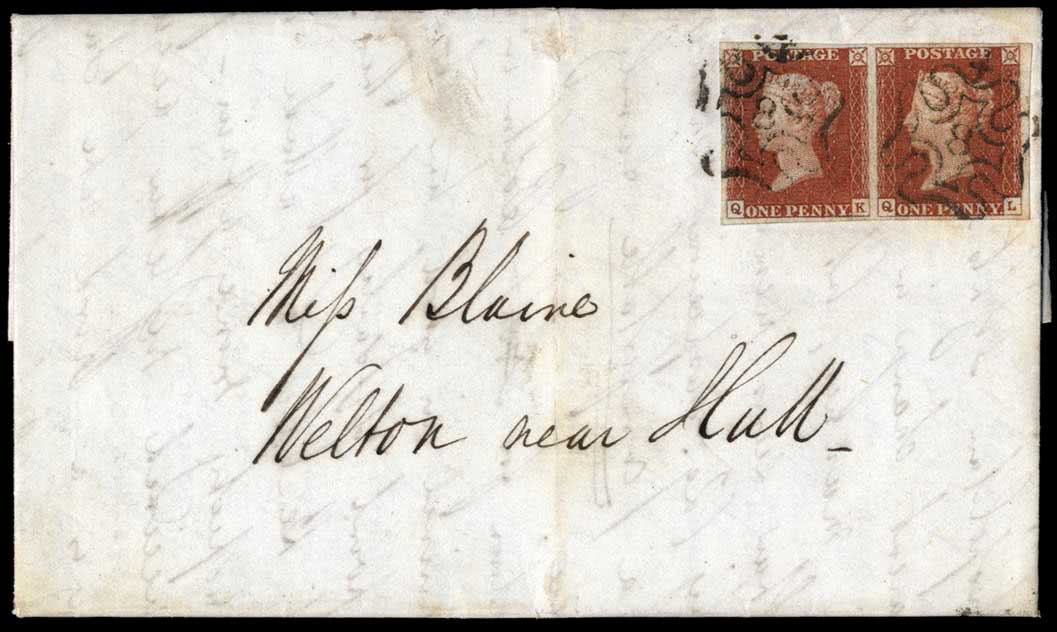 POSTAGE POSTAGE
Q ONE PENNY K Q ONE PENNY L
Miſs Blaine
Welton near Hull